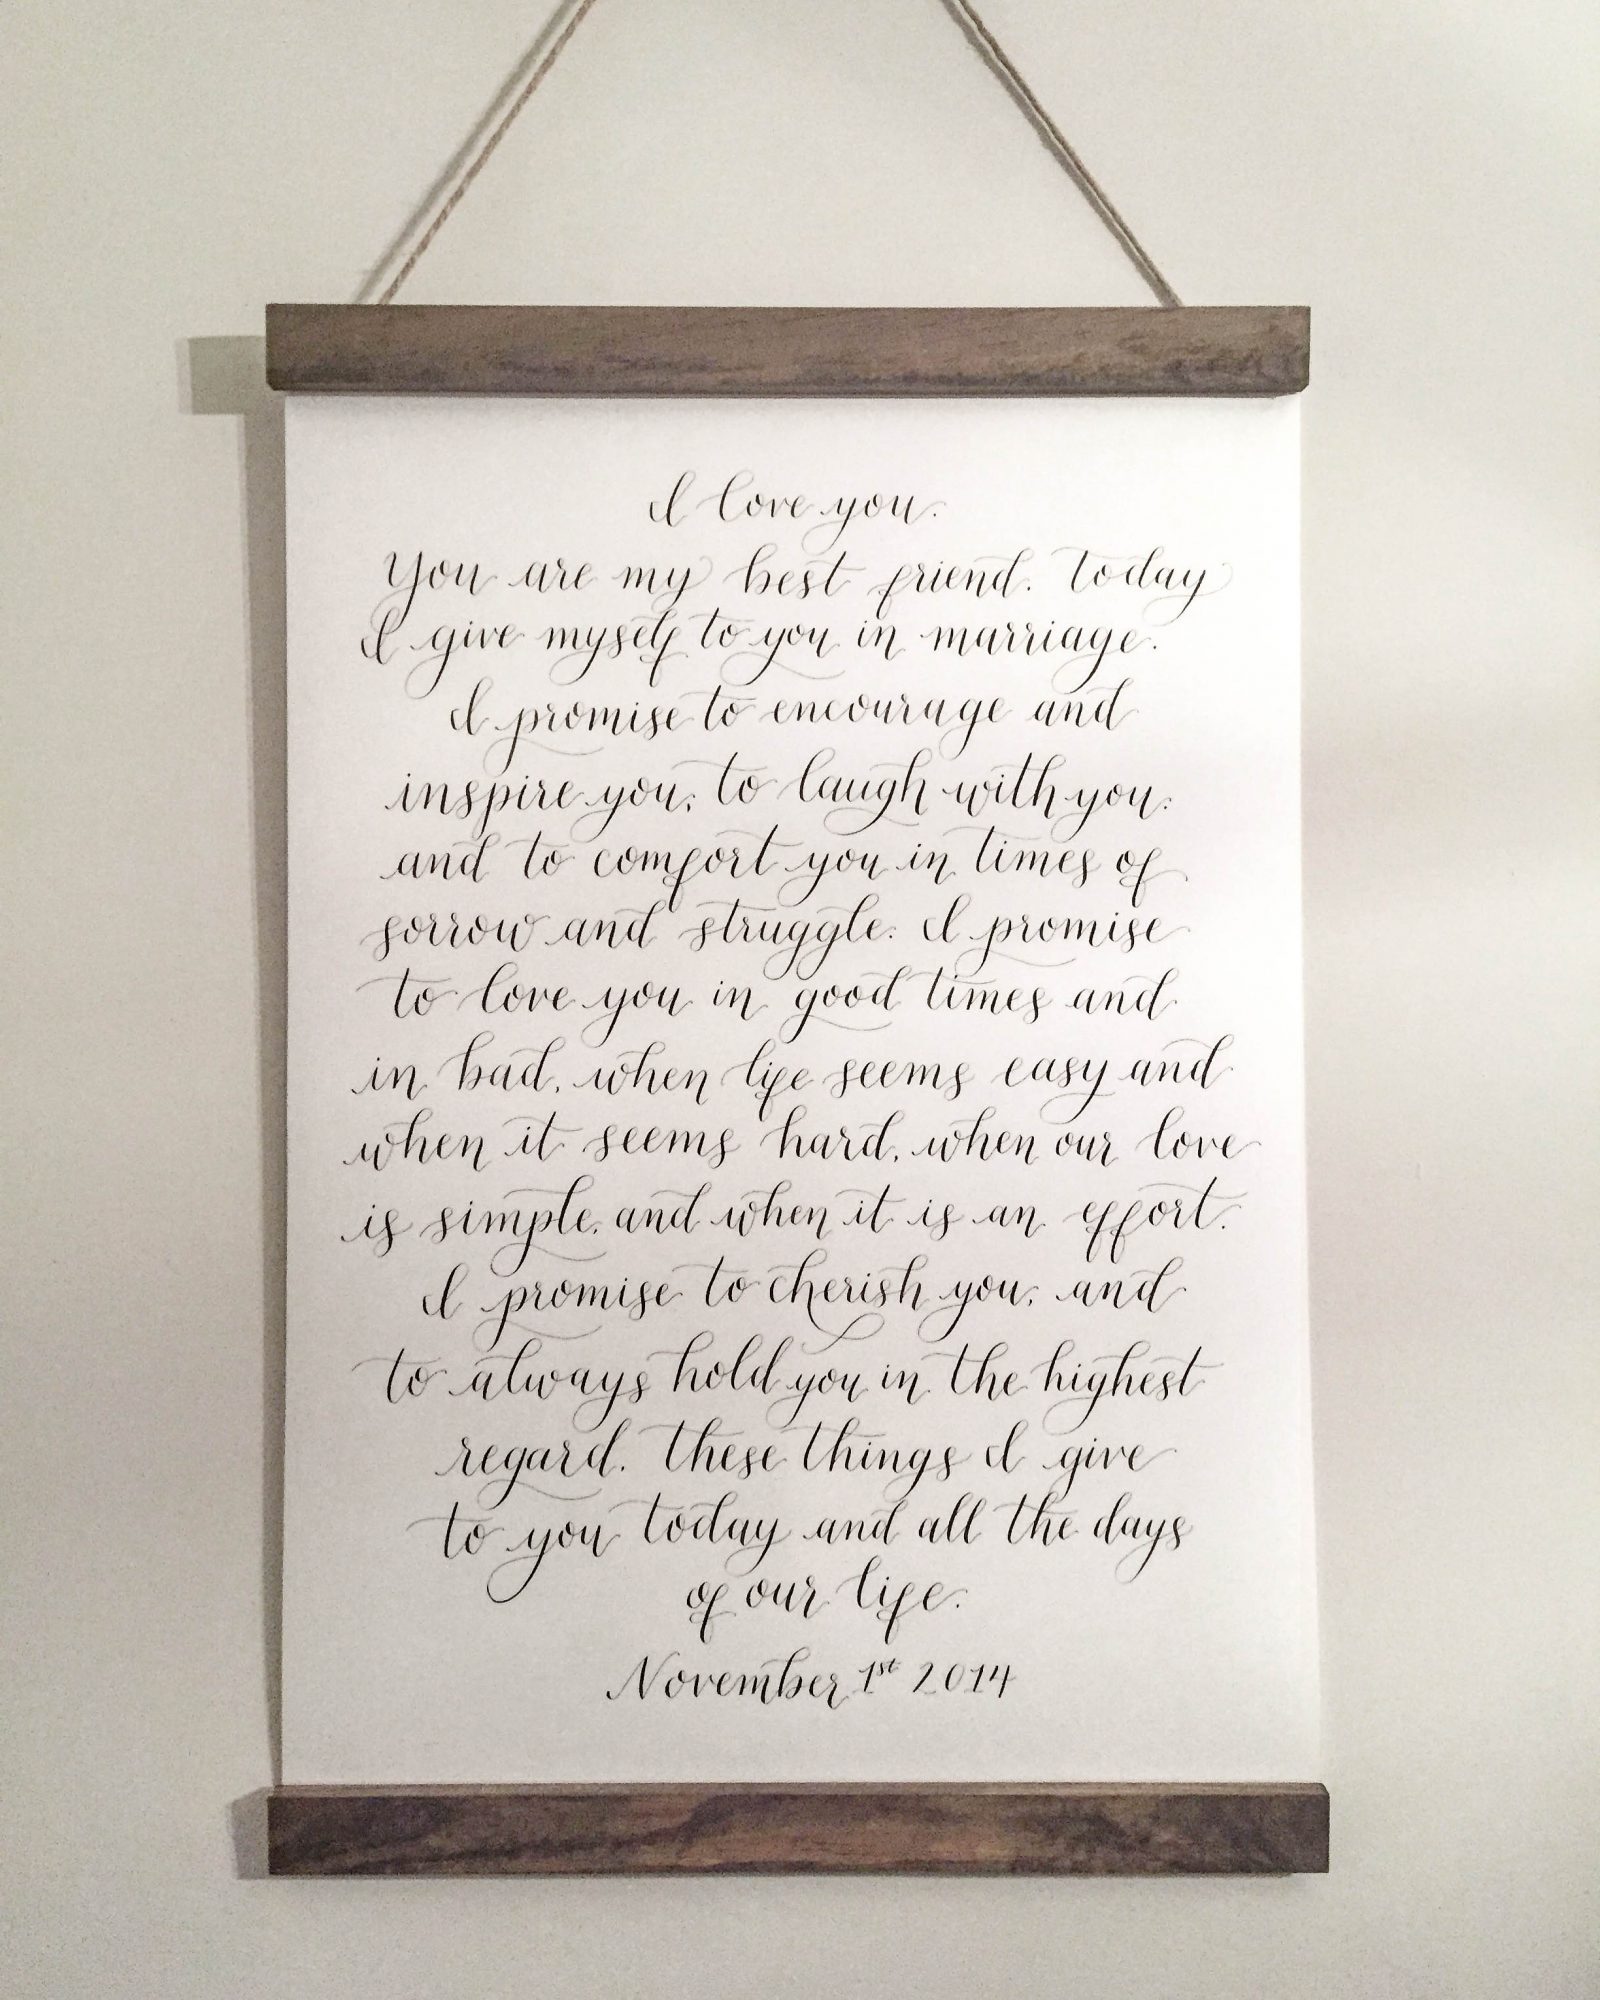 I love you.
You are my best friend. Today
I give myself to you in marriage.
I promise to encourage and
inspire you, to laugh with you,
and to comfort you in times of
sorrow and struggle. I promise
to love you in good times and
in bad, when life seems easy and
when it seems hard, when our love
is simple, and when it is an effort.
I promise to cherish you, and
to always hold you in the highest
regard. These things I give
to you today and all the days
of our life.
November 1st 2014